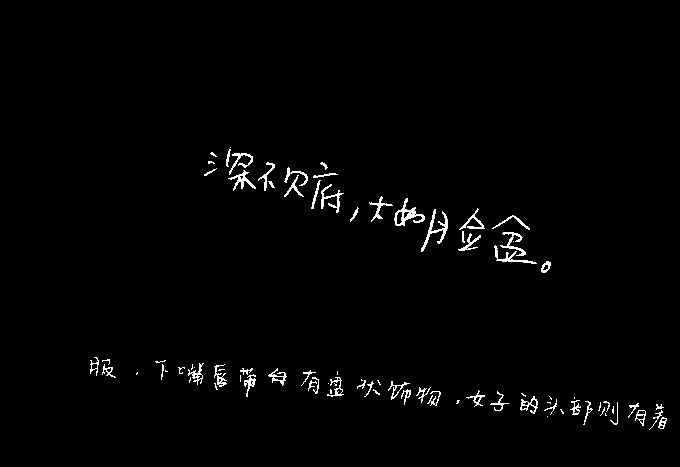 深不见底,大如脸盆。
服,下嘴唇带白有盘状饰物,女子的头部则有着